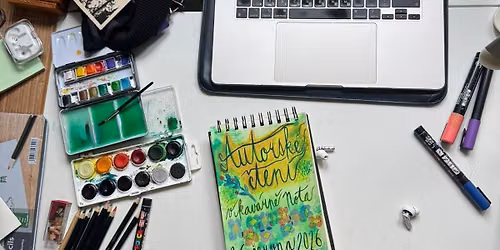 Autorské
čtení
v kavárně Nota
2026